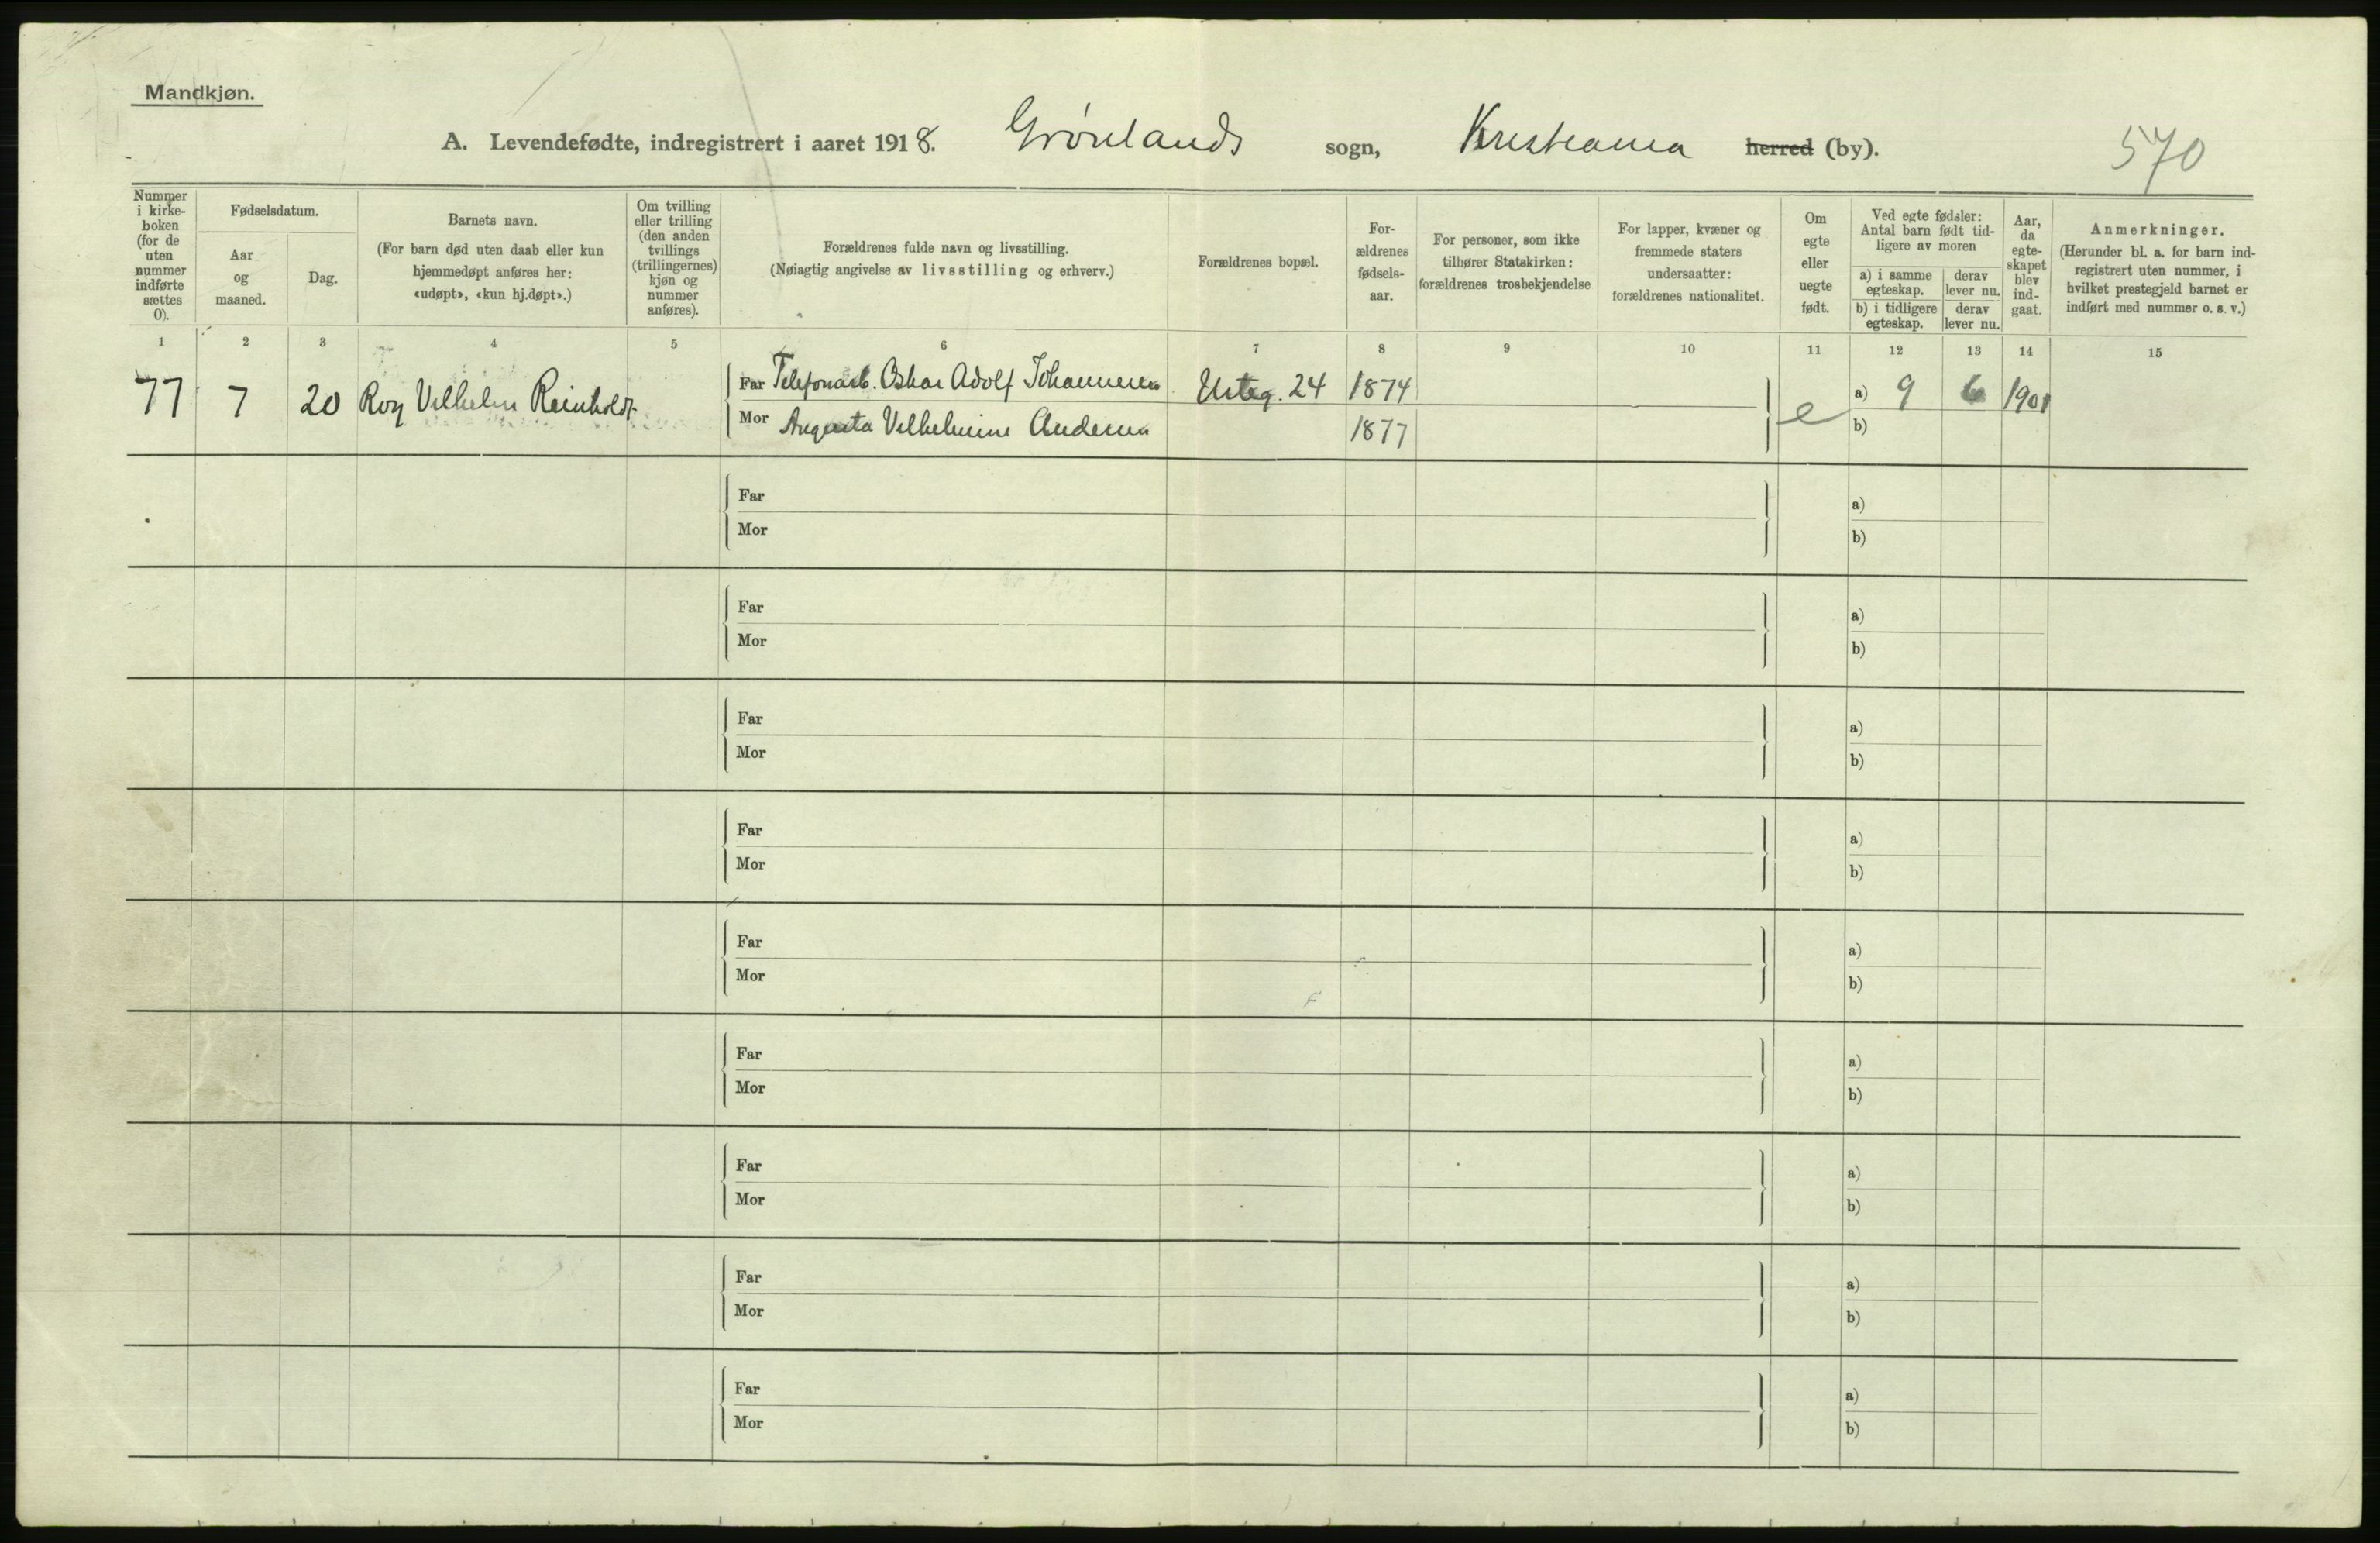 Mandkjøn.
A. Levendefødte, indregistrert i aaret 1918. Grønlands sogn, Kristiania herred (by). 570
Nummer i kirke-boken (for de uten nummer indførte sættes 0).
Fødselsdatum.
Aar og maaned.
Dag.
Barnets navn.
(For barn død uten daab eller kun hjemmedøpt anføres her: «udøpt», «kun hj.døpt».)
Om tvilling eller trilling (den anden tvillings (trillingernes) kjøn og nummer anføres).
Forældrenes fulde navn og livsstilling.
(Nøiagtig angivelse av livsstilling og erhverv.)
Forældrenes bopæl.
For-ældrenes fødsels-aar.
For personer, som ikke tilhører Statskirken: forældrenes trosbekjendelse
For lapper, kvæner og fremmede staters undersaatter: forældrenes nationalitet.
Om egte eller uegte født.
Ved egte fødsler: Antal barn født tid-ligere av moren
a) i samme egteskap.
derav lever nu.
b) i tidligere egteskap.
derav lever nu.
Aar, da egte-skapet blev ind-gaat.
Anmerkninger.
(Herunder bl. a. for barn ind-registrert uten nummer, i hvilket prestegjeld barnet er indført med nummer o. s. v.)
1 2 3 4 5 6 7 8 9 10 11 12 13 14 15
77 7 20 Roy Vilhelm Reinholdt Far Telefonarb. Oskar Adolf Johannesen Urteg. 24 1874 e a) 9 6 1901
Mor Augusta Vilhelmine Andersen 1877 b)
Far a)
Mor b)
Far a)
Mor b)
Far a)
Mor b)
Far a)
Mor b)
Far a)
Mor b)
Far a)
Mor b)
Far a)
Mor b)
Far a)
Mor b)
Far a)
Mor b)